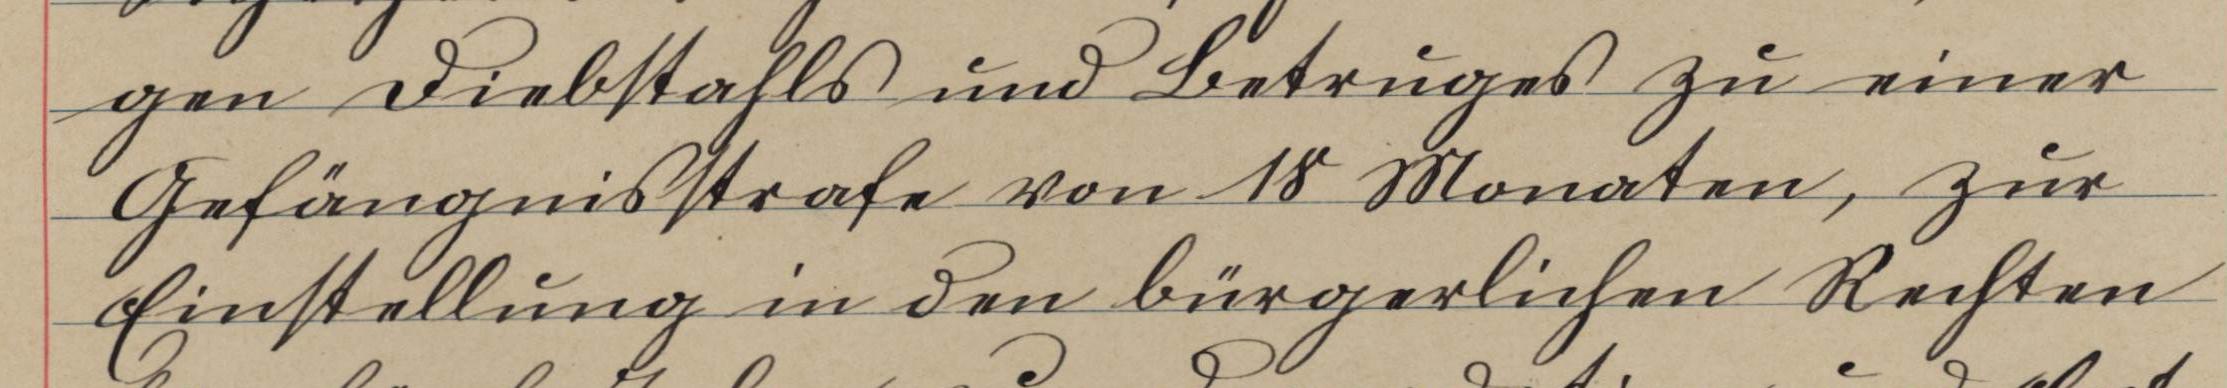 gen Diebstahls und Betruges zu einer
Gefängnisstrafe von 18 Monaten, zur
Einstellung in den bürgerlichen Rechten